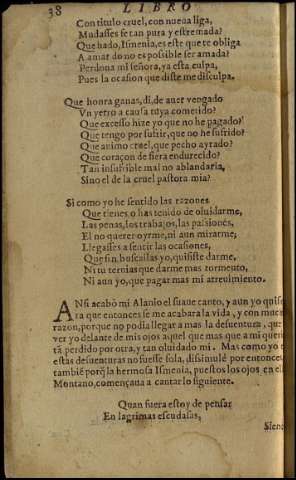 38 LIBRO
Con titulo cruel, con nueua liga,
Mudasses fe tan pura y estremada?
Que hado, Ismenia, es este que te obliga
A amar do no es possible ser amada?
Perdona mi señora, ya esta culpa,
Pues la ocasion que diste me disculpa.
Que honra ganas, di, de auer vengado
Vn yerro a causa tuya cometido?
Que excesso hize yo que no he pagado?
Que tengo por sufrir, que no he sufrido?
Que animo cruel, que pecho ayrado?
Que coraçon de fiera endurecido?
Tan insufrible mal no ablandaria,
Sino el de la cruel pastora mia?
Si como yo he sentido las razones
Que tienes o has tenido de oluidarme,
Las penas, los trabajos, las passiones,
El no querer oyrme, ni aun mirarme,
Llegasses a sentir las ocasiones,
Que sin buscallas yo, quisiste darme,
Ni tu ternias que darme mas tormento,
Ni aun yo, que pagar mas mi atreuimiento.
ANsi acabò mi Alanio el suaue canto, y aun yo quisie
ra que entonces se me acabara la vida, y con mucha
razon, porque no podia llegar a mas la desuentura, que a
ver yo delante de mis ojos aquel que mas que a mi queria
tã perdido por otra, y tan oluidado mi. Mas como yo en
estas desuenturas no fuesse sola, dissimulè por entonces,
tambiẽ porq̃ la hermosa Ismenia, puestos los ojos en el
Montano, començaua a cantar lo siguiente.
Quan fuera estoy de pensar
En lagrimas escusadas,
Sien